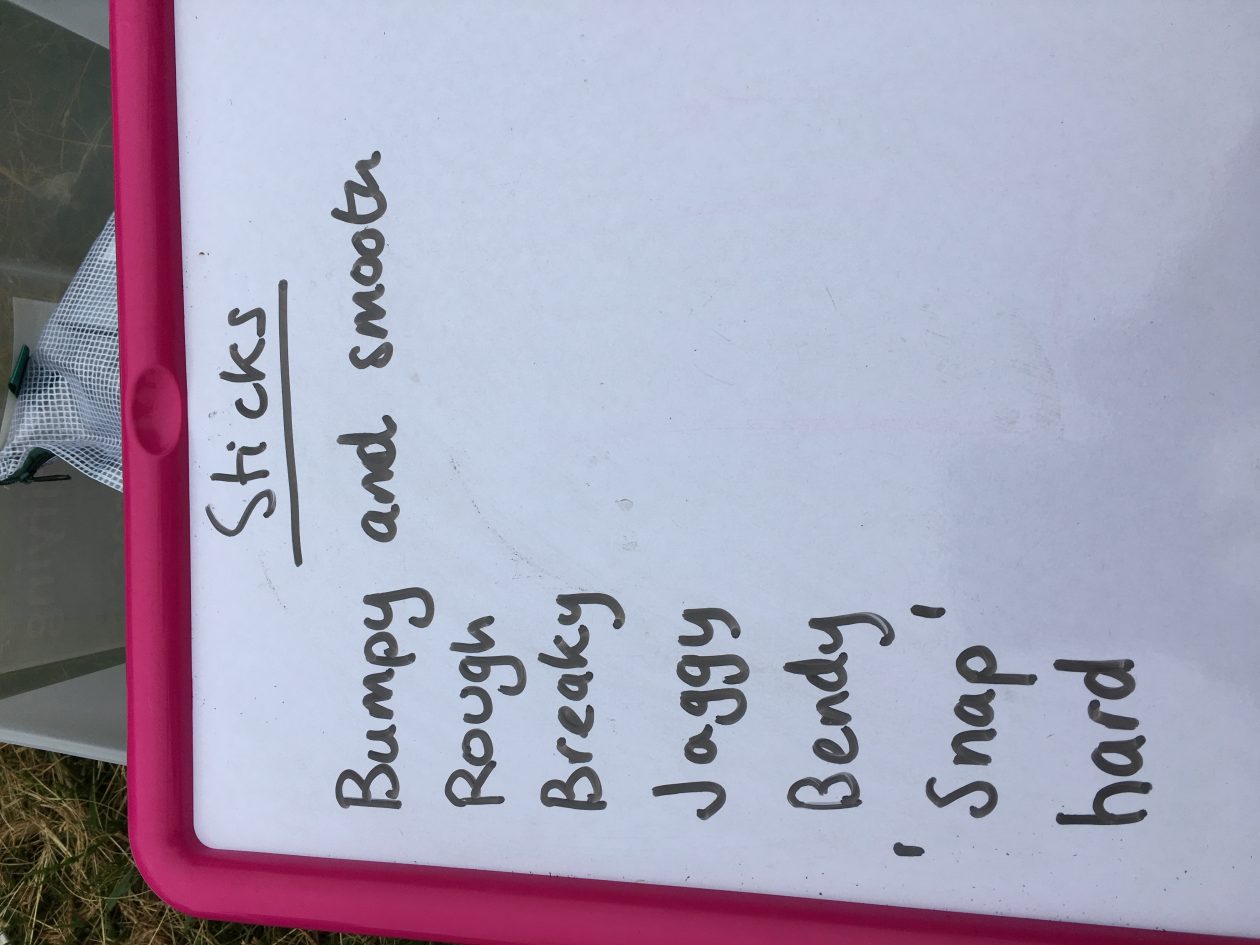 Sticks
Bumpy and smooth
Rough
Breaky
Jaggy
Bendy
'Snap'
hard